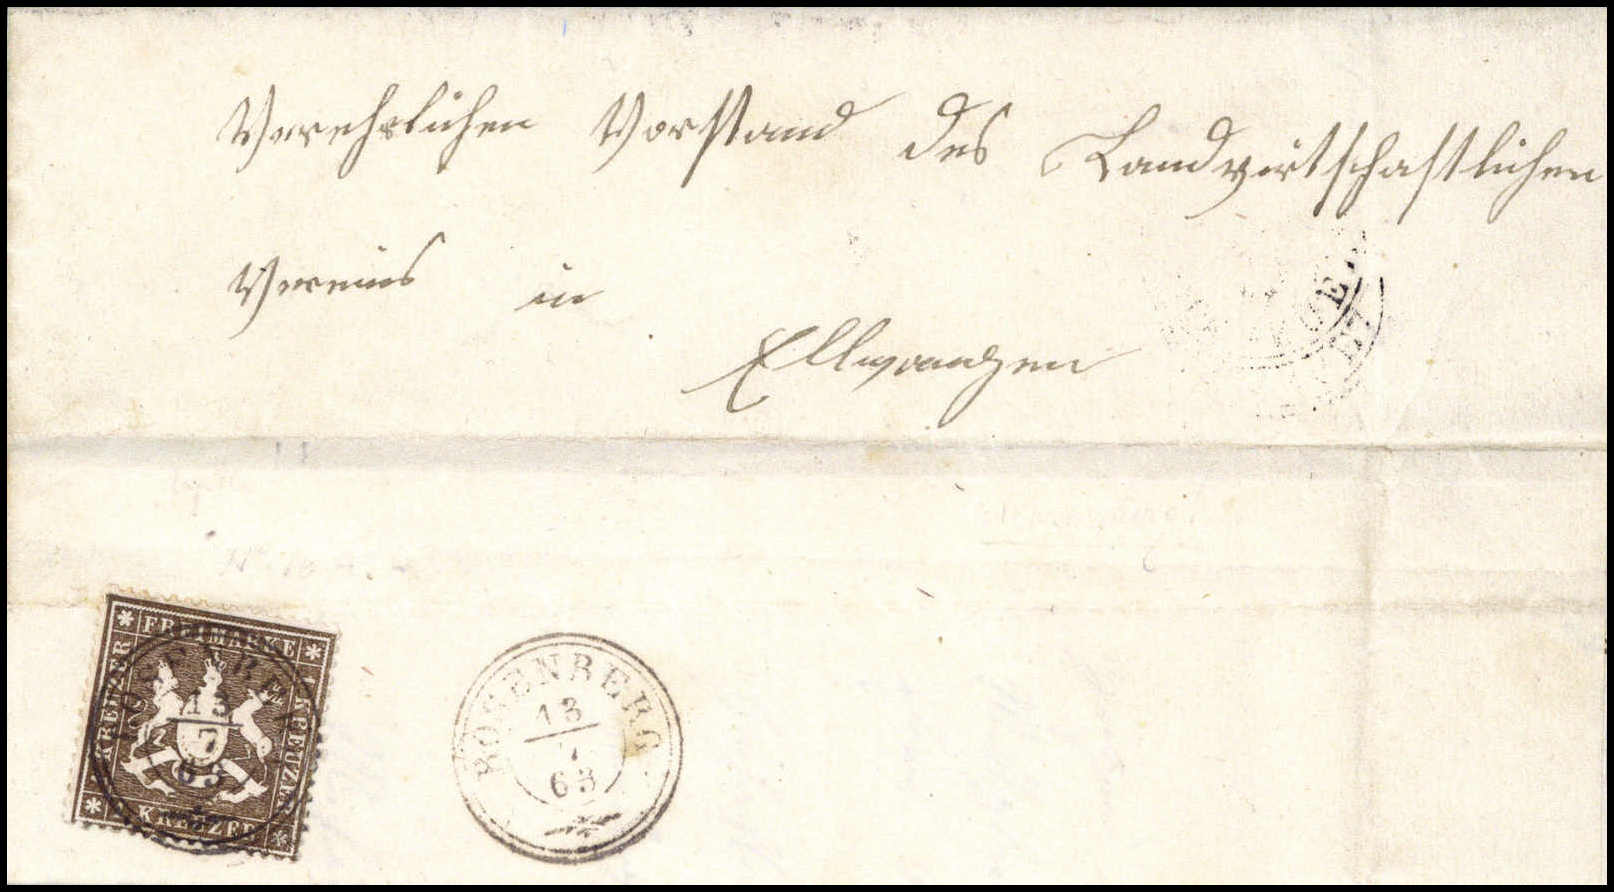 Verehrlichen Vorstand des Landwirtschaftlichen
Vereins in
Ellwangen
FREIMARKE
KREUZER
KREUZER
KREUZER
ROSENBERG
13
7
63
ROSENBERG
13
7
63